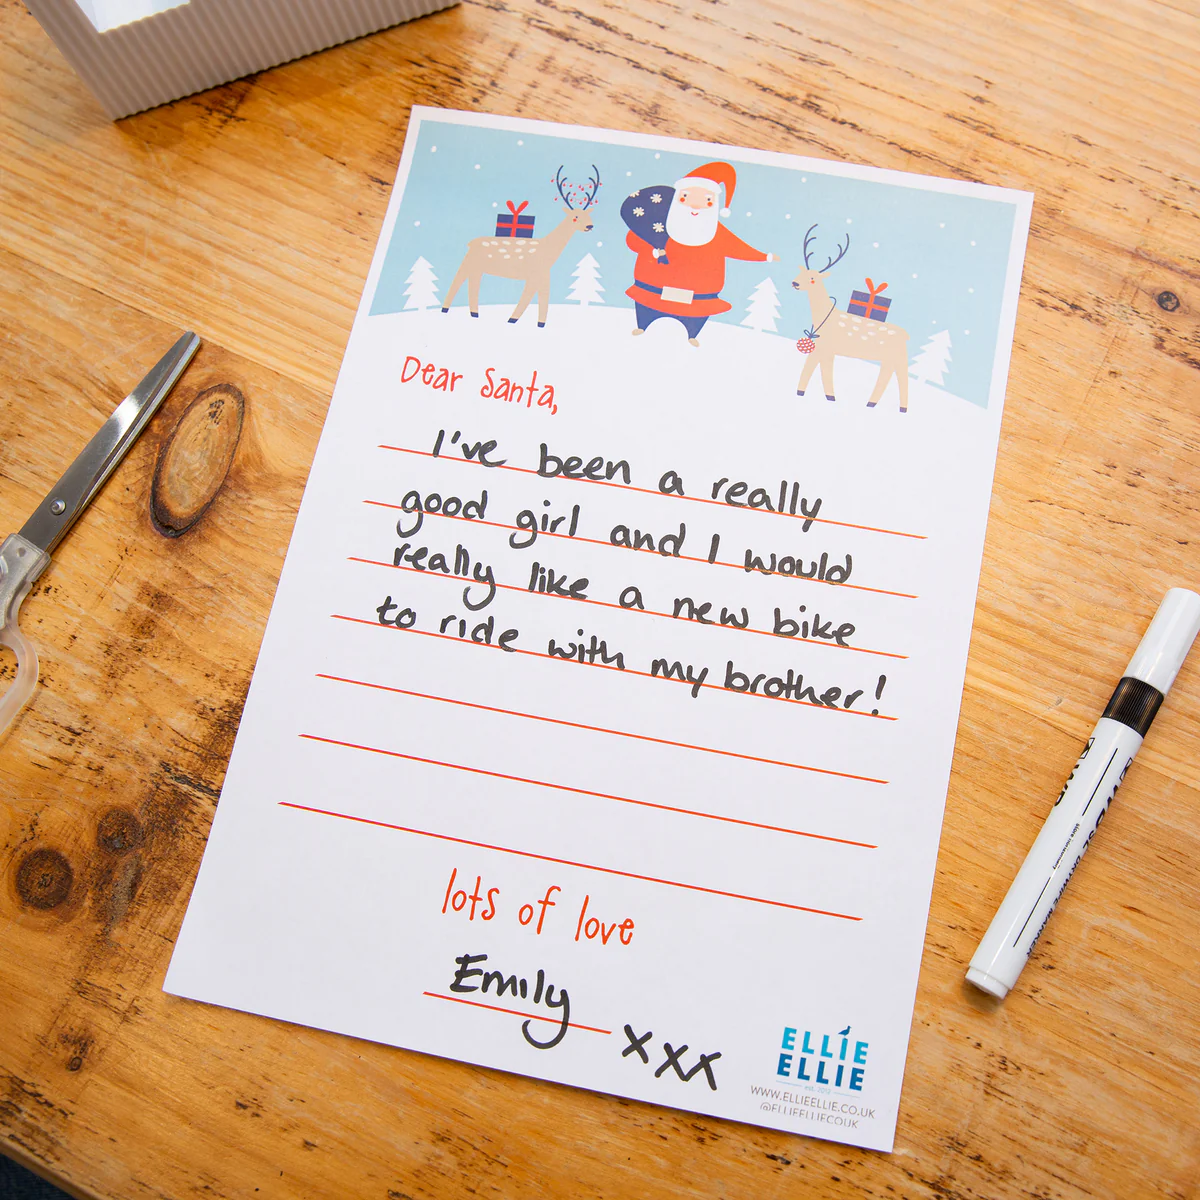 Dear Santa,
I've been a really
good girl and I would
really like a new bike
to ride with my brother!
lots of love
Emily
xxx
ELLIE
ELLIE
WWW.ELLIEELLIE.CO.UK
@ELLIEELLIECOUK